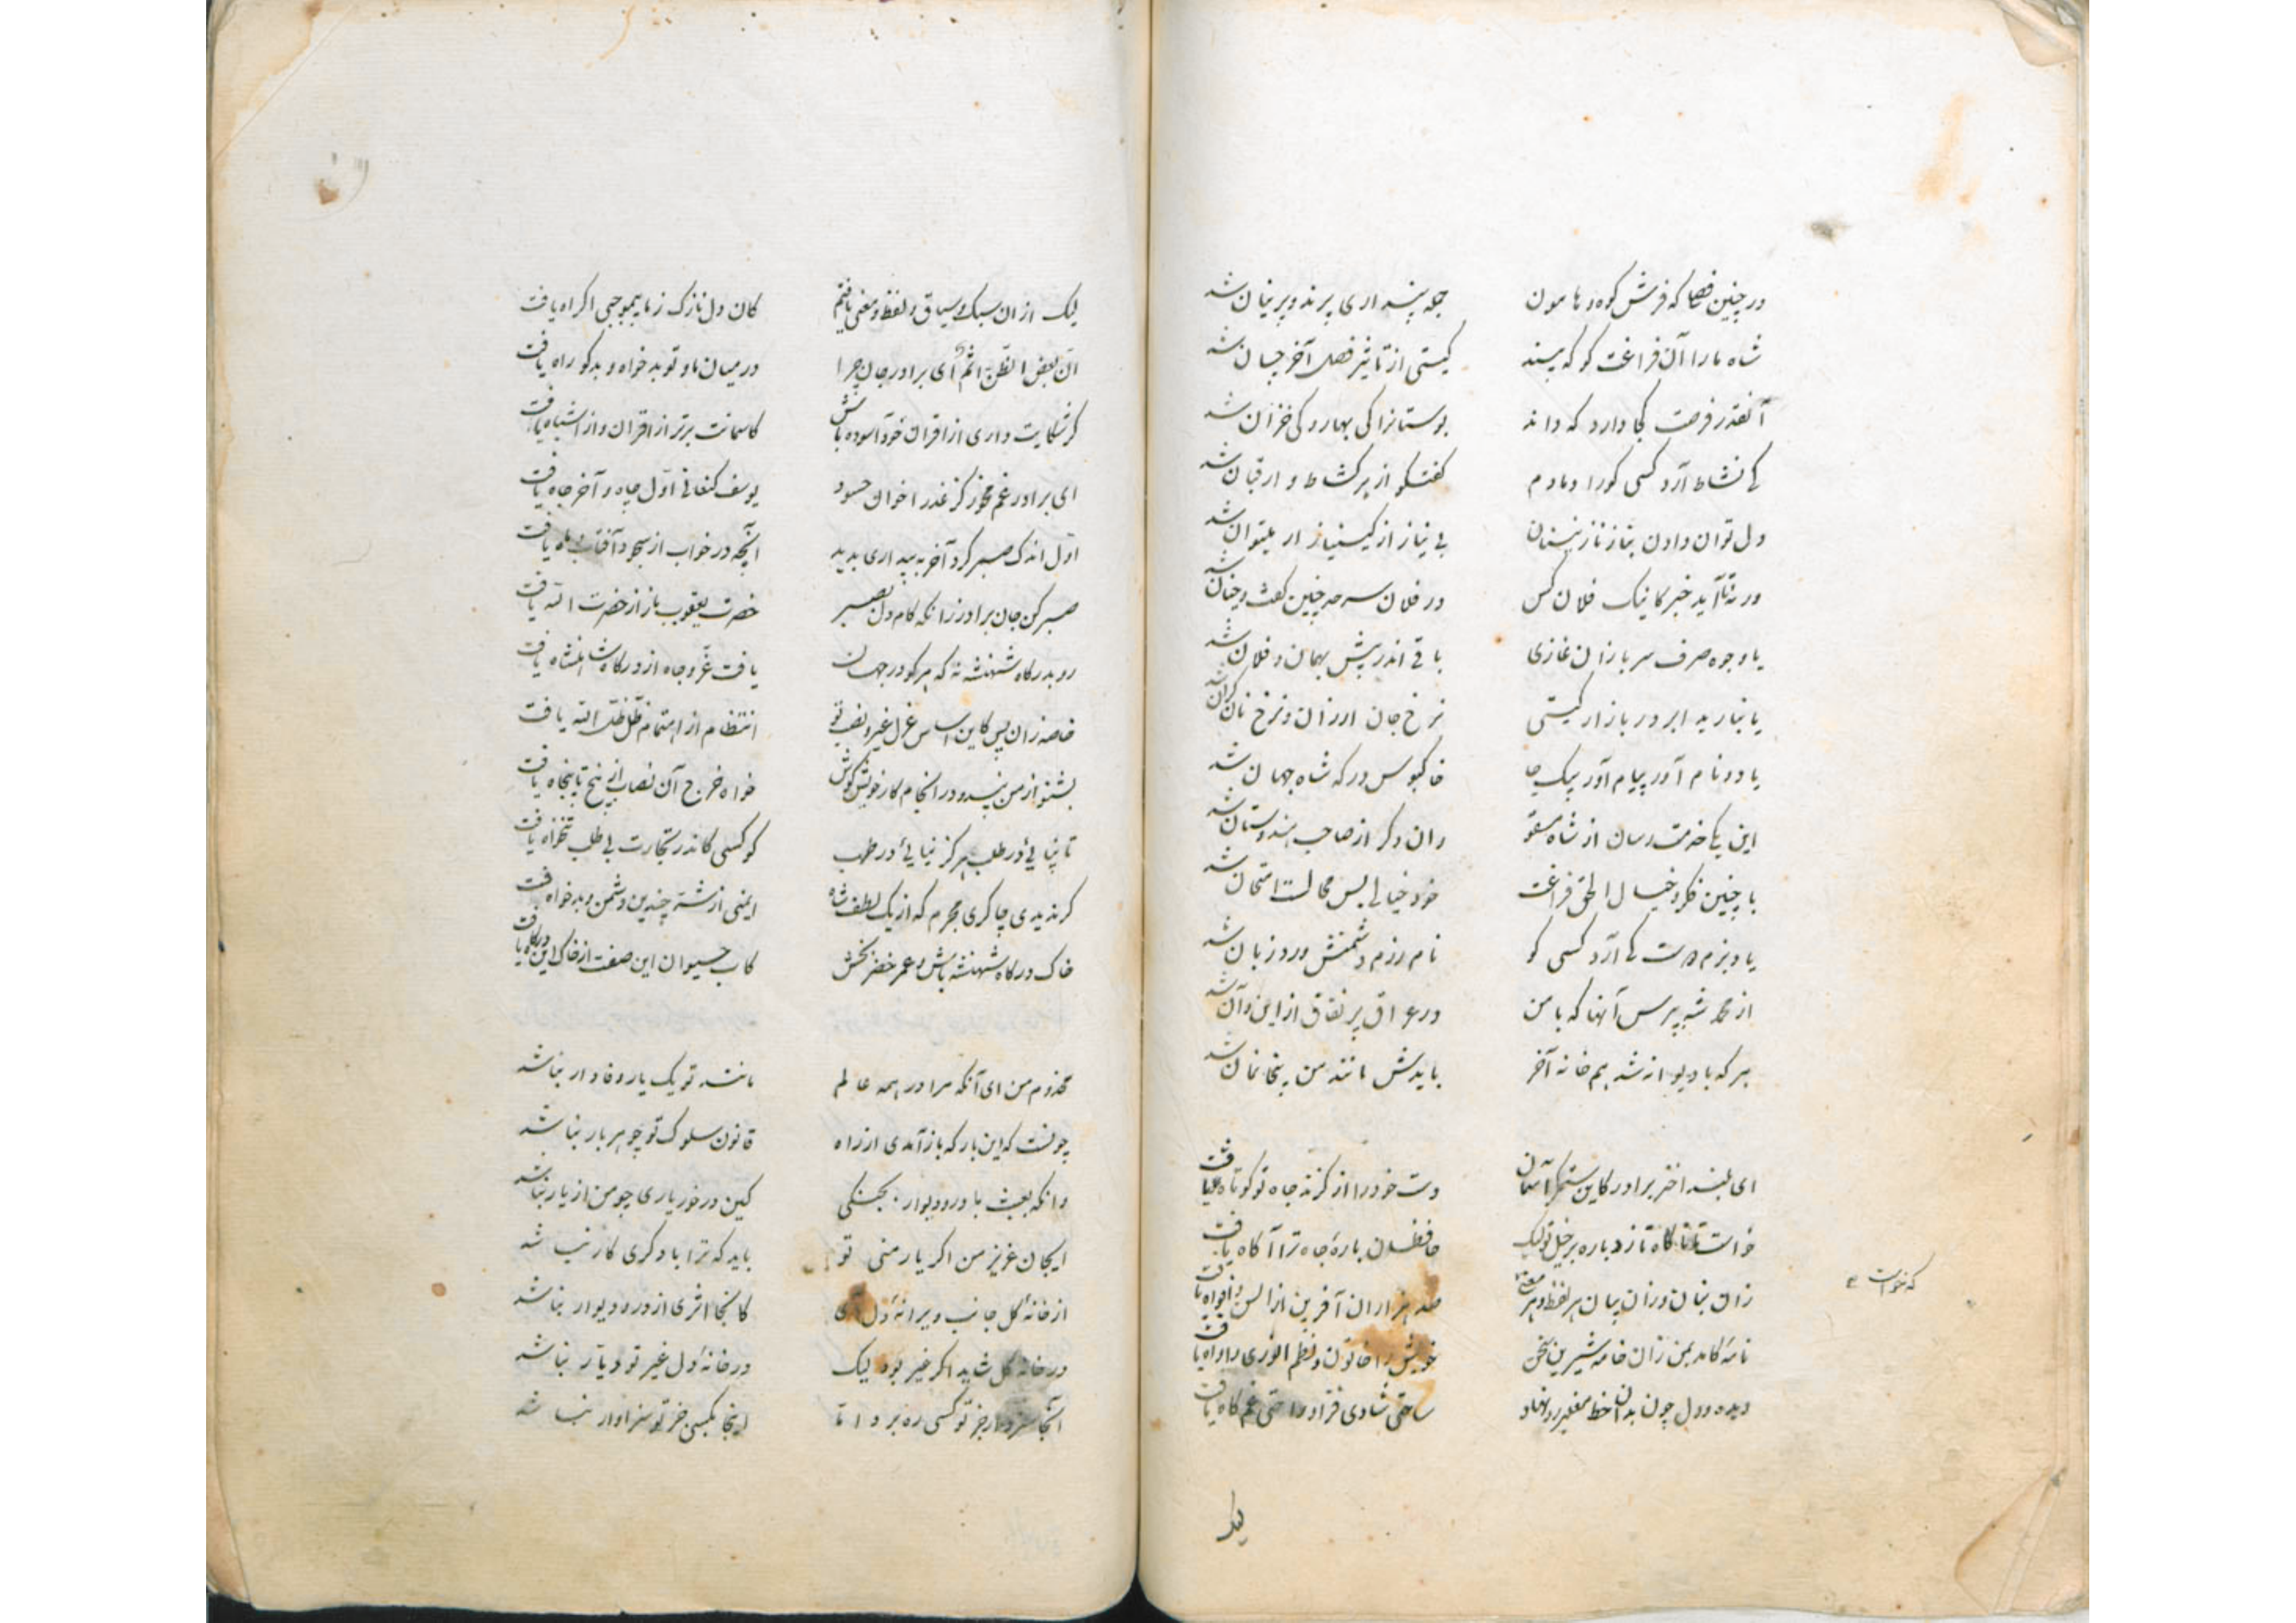 در چنین فصلی که فرش کوه و هامون جمله پنداری پرند و پرنیان شد
شاه ما را آن فراغت کو که بیند گیتی از تأثیر فصل آخر چسان شد
آنقدر فرصت کجا دارد که داند بوستانرا کی بهار و کی خزان شد
کی نشاط آرد کسی کورا دمادم گفتگو از
دل توان دادن بناز نازنینان بی نیاز از
ور نه تا آید خبر کاینک فلان کس در فلان سرحد چنین گفت و چنان شد
یا وجوه صرف سربازان غازی باقی اندر پیش بهمان و فلان شد
یا نبارید ابر و در بازار گیتی نرخ جان ارزان و نرخ نان گران شد
یا دو نام آور پیام آور پیک جا خاکبوس درگه شاه جهان شد
این یکی خدمت رسان از شاه سقو وان دگر از صاحب هندوستان شد
با چنین فکر و خیال الحق فراغت خود خیالی بس محالست امتحان شد
یاد بزم دوست کی آرد کسی کو نام رزم دشمنش ورد زبان شد
از محمد شه بپرس آنها که با من در عراق پر نفاق از این و آن شد
هر که با دیوانه شد هم خانه آخر بایدش مانند من بیخانمان شد
ای بلند اختر برادر کاین ستمگر آسمان دست خود را از گزند جاه تو کوتاه یافت
خواست تا ناگاه تازد باره بر خیل تو لیک حافظان باره جاه ترا آگاه یافت
که نخواست
زان بنان وزان بیان هر لفظ و هر معنی صد هزاران آفرین از السن و افواه یافت
نامه کامد بمن زان خامه شیرین سخن خویش را خاقون و نظم انوری را واه یافت
دیده و دل چون بدان خط رو نهاد ساحتی شادی فزا و راحتی غم کاه یافت
لیک
لیک از ان سبک و سیاق و لفظ و معنی یافتم کان دل نازک ز ما بیموجبی اکراه یافت
ان بعض الظن اثم ای برادر جان چرا در میان ما و تو بدخواه و بدگو راه یافت
گر شکایت داری از اقران خود آسوده باش کاسمانت برتر از اقران و از اشباه یافت
ای برادر غم مخور کز غدر اخوان حسود یوسف کنعانی اول چاه و آخر جاه یافت
اول اندک صبر کرد آخر به بیداری بدید آنچه در خواب از سجود آفتاب و ماه یافت
صبر کن جان برادر زانکه کام دل بصبر حضرت یعقوب باز از حضرت الله یافت
رو بدرگاه شهنشه نه که هر کو در جهان یافت عز و جاه از درگاه شاهنشاه یافت
خاصه زان پس کاین اساس عزل غیر و نصب تو انتظام از اهتمام ظل ظل الله یافت
بشنو از من پند و در انجام کار خویش کوش خواه خرج آن نصاب از پنج تا پنجاه یافت
تا نپایی در طلب هرگز نیابی در طرب کو کسی کاندر تجارت بی طلب تنخواه یافت
گر ندیدی چاکری مجرم که از یک لطف شاه ایمنی از شنعت چندین دشمن و بدخواه یافت
خاک درگاه شهنشه باش و عمر خضر بخش کاب حیوان این صفت از خاک این درگاه یافت
مخدوم من ای آنکه مرا در همه عالم مانند تو یک یار وفادار نباشد
چونست که این بار که باز آمدی از راه قانون سلوک تو چو هر بار نباشد
وانگه بعبث با در و دیوار بجنگی کین در خور یاری چو من از یار نباشد
ایجان عزیز من اگر یار منی تو باید که ترا با دگری کار نباشد
از خانه گل جانب ویرانه دل آی کانجا اثری از در و دیوار نباشد
در خانه گل شاید اگر غیر بود لیک در خانه دل غیر تو دیار نباشد
آنجا سزد ار جز تو کسی ره برد اما اینجا بکسی جز تو سزاوار نباشد